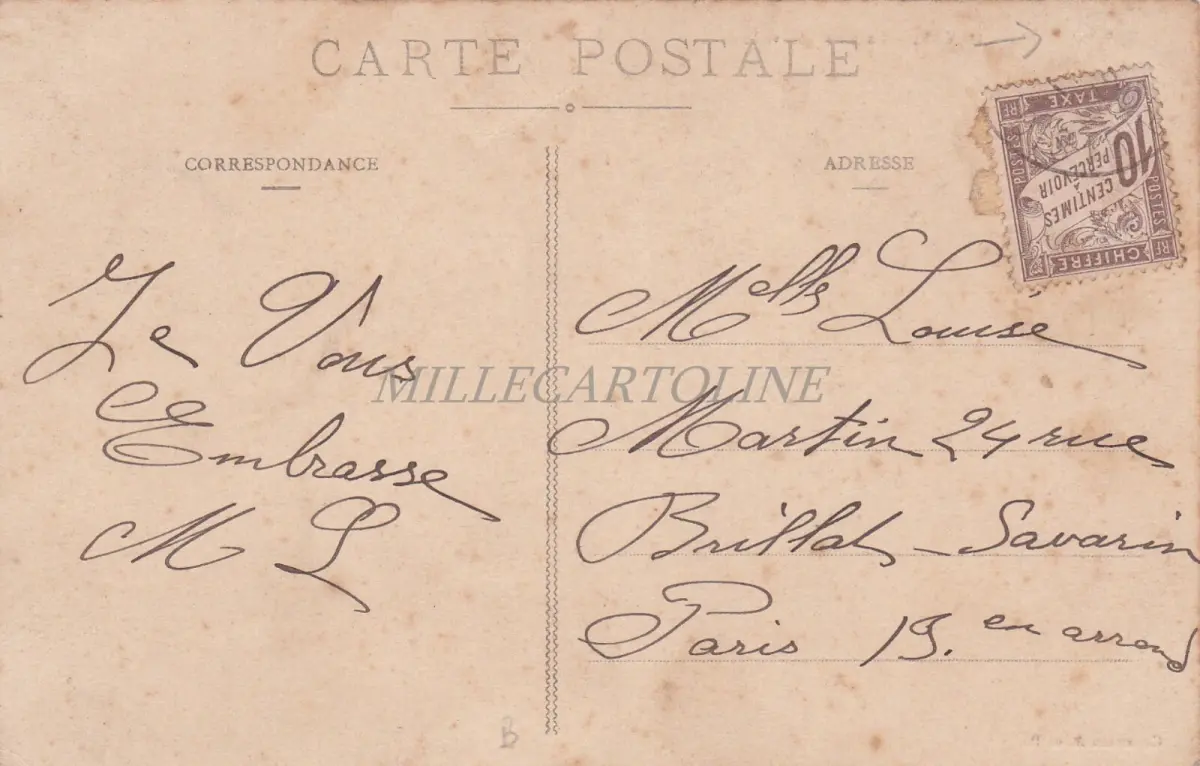 CARTE POSTALE
CORRESPONDANCE
Je Vous
Embrasse
M L
ADRESSE
Melle Louise
Martin 24 rue
Brillat-Savarin
Paris 13. en arrond
POSTES
RF
TAXE
10
CENTIMES
À
PERCEVOIR
POSTES
RF
CHIFFRE
MILLECARTOLINE
B